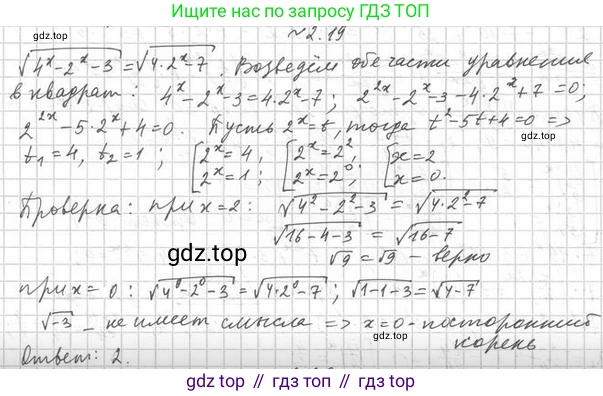 Ищите нас по запросу ГДЗ ТОП
№2.19
√(4ˣ-2ˣ-3) = √(4·2ˣ-7). Возведём обе части уравнения
в квадрат: 4ˣ-2ˣ-3=4·2ˣ-7; 2²ˣ-2ˣ-3-4·2ˣ+7=0;
2²ˣ-5·2ˣ+4=0. Пусть 2ˣ=t, тогда t²-5t+4=0 =>
t₁=4, t₂=1; [2ˣ=4, 2ˣ=1; [2ˣ=2², 2ˣ=2⁰; [x=2 x=0.
Проверка: при x=2: √(4²-2²-3) = √(4·2²-7)
√(16-4-3) = √(16-7)
gdz.top
√9=√9 - верно
при x=0: √(4⁰-2⁰-3)=√(4·2⁰-7); √(1-1-3)=√(4-7)
√-3 - не имеет смысла => x=0 - посторонний
корень
Ответ: 2.
gdz.top
gdz top // gdz.top // gdz.top // gdz top